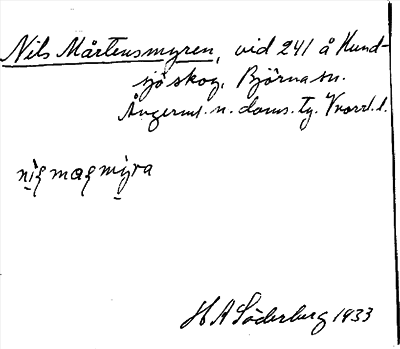 Nils Mårtensmyren, vid 241 å Hund-
sjö skog, Björna sn.
Ångerml. n. doms. tg. Vnorrl. l.
H A Söderberg 1933